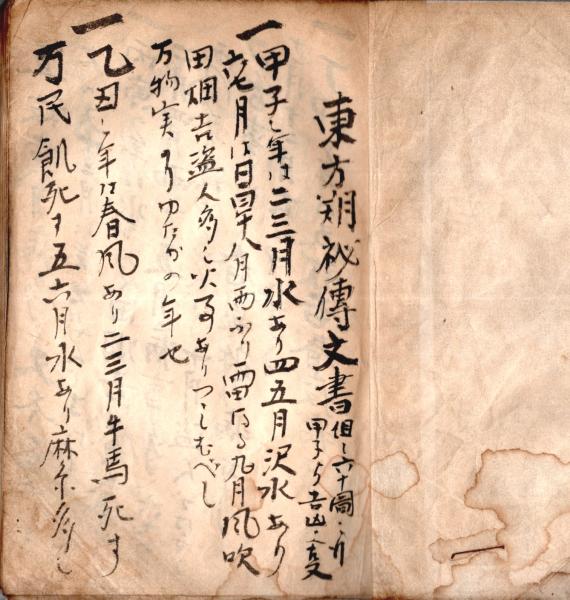 東方朔秘傳文書
但し六十圖
甲子より吉凶
一甲子之年は二三月水あり四五月沢水あり
六七月は日 八月雨ふり雷なる九月風吹
田畑吉盗人多し火あありつゝしむべし
万物実りゆたかの年也
一乙丑之年は春風あり二三月牛馬死す
万民飢死す五六月水あり麻糸多し